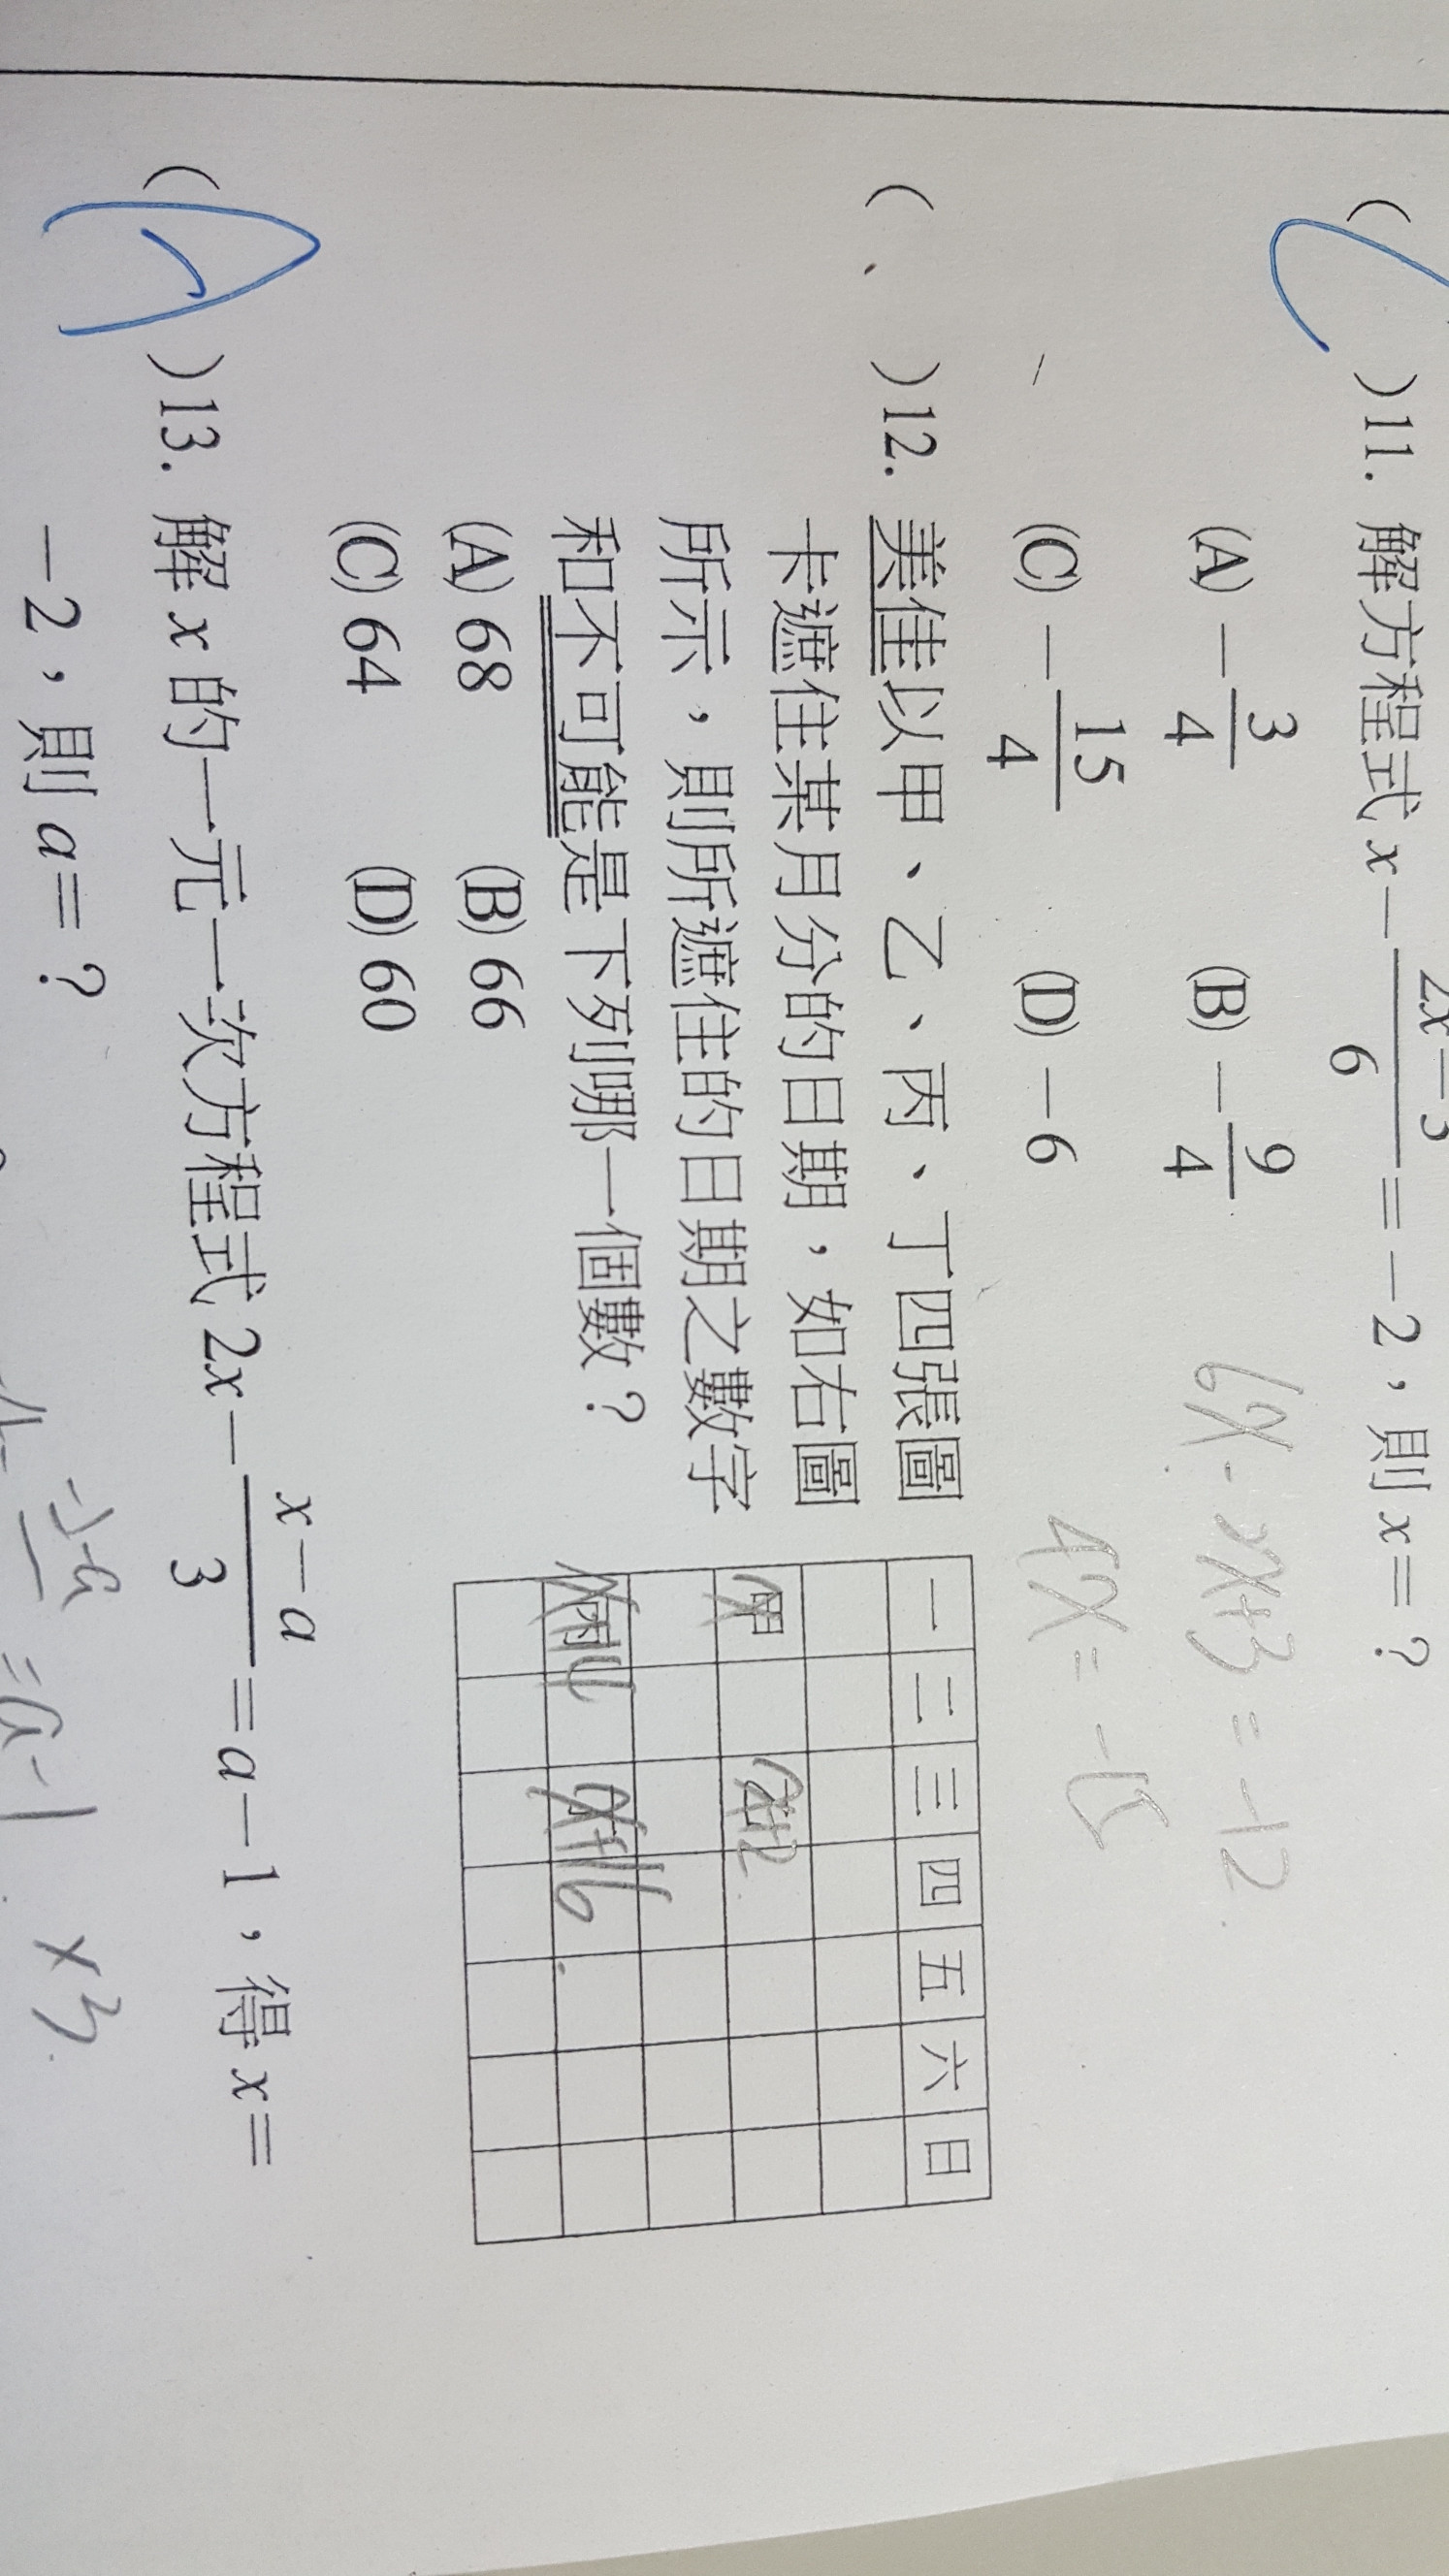 (C)11. 解方程式 x－(2x－3)/6＝－2，則 x＝？
(A)－3/4 (B)－9/4
6x－2x+3＝－12
(C)－15/4 (D)－6
4x＝－15
( )12. 美佳以甲、乙、丙、丁四張圖
卡遮住某月分的日期，如右圖
所示，則所遮住的日期之數字
和不可能是下列哪一個數？
(A) 68 (B) 66
(C) 64 (D) 60
一 二 三 四 五 六 日
甲 x 乙 x+2
丙 x+14 丁 x+16
(A)13. 解 x 的一元一次方程式 2x－(x－a)/3＝a－1，得 x＝
－2，則 a＝？
－2－a
＝a－1 ×3